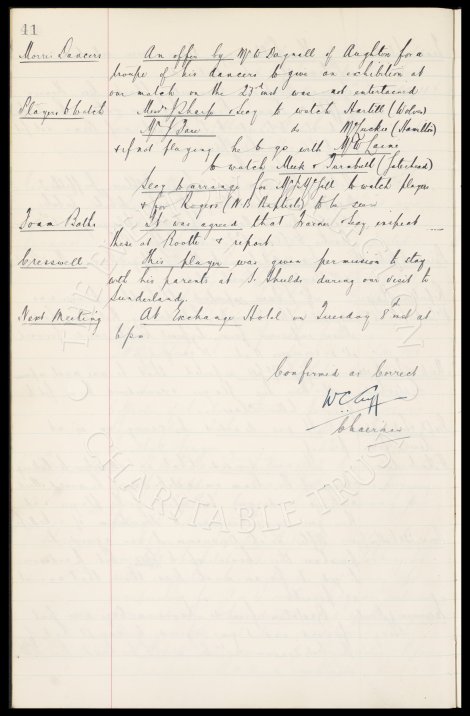 41
Morris Dancers An offer by Mr W Bagnall of Aughton for a
troupe of his dancers to give an exhibition at
our match on the 29th inst was not entertained
Players to Watch Messrs J Sharp & Secy to watch Hartill (Wolves)
do McLuckie (Hamilton)
& if not playing he to go with
to watch Meek & Turnbull (Gateshead)
Secy to arrange for to watch players
& for Rogers (N B Baptists) to be seen
Foam Baths It was agreed that Trainer & Secy inspect
these at Bootle & report.
Cresswell This player was given permission to stay
with his parents at S. Shields during our visit to
Sunderland.
Next Meeting At Exchange Hotel on Tuesday 8th inst at
Confirmed as Correct
W C Cuff
Chairman
CHARITABLE TRUST